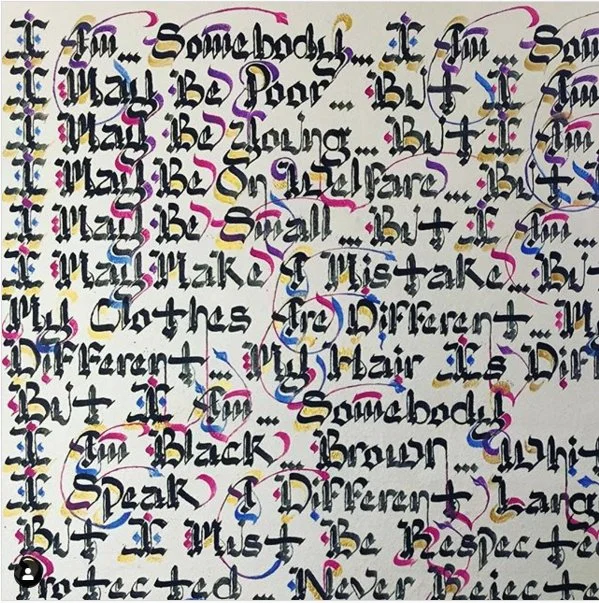 I Am... Somebody... I Am... Som
I May Be Poor... But I Am
I May Be Young... But I Am
I May Be On Welfare... But I
I May Be Small... But I Am...
I May Make A Mistake... But
My Clothes Are Different... My
Different... My Hair Is Diff
But I Am... Somebody
I Am Black... Brown... Whit
I Speak A Different Lang
But I Must Be Respecte
Protected... Never Rejecte